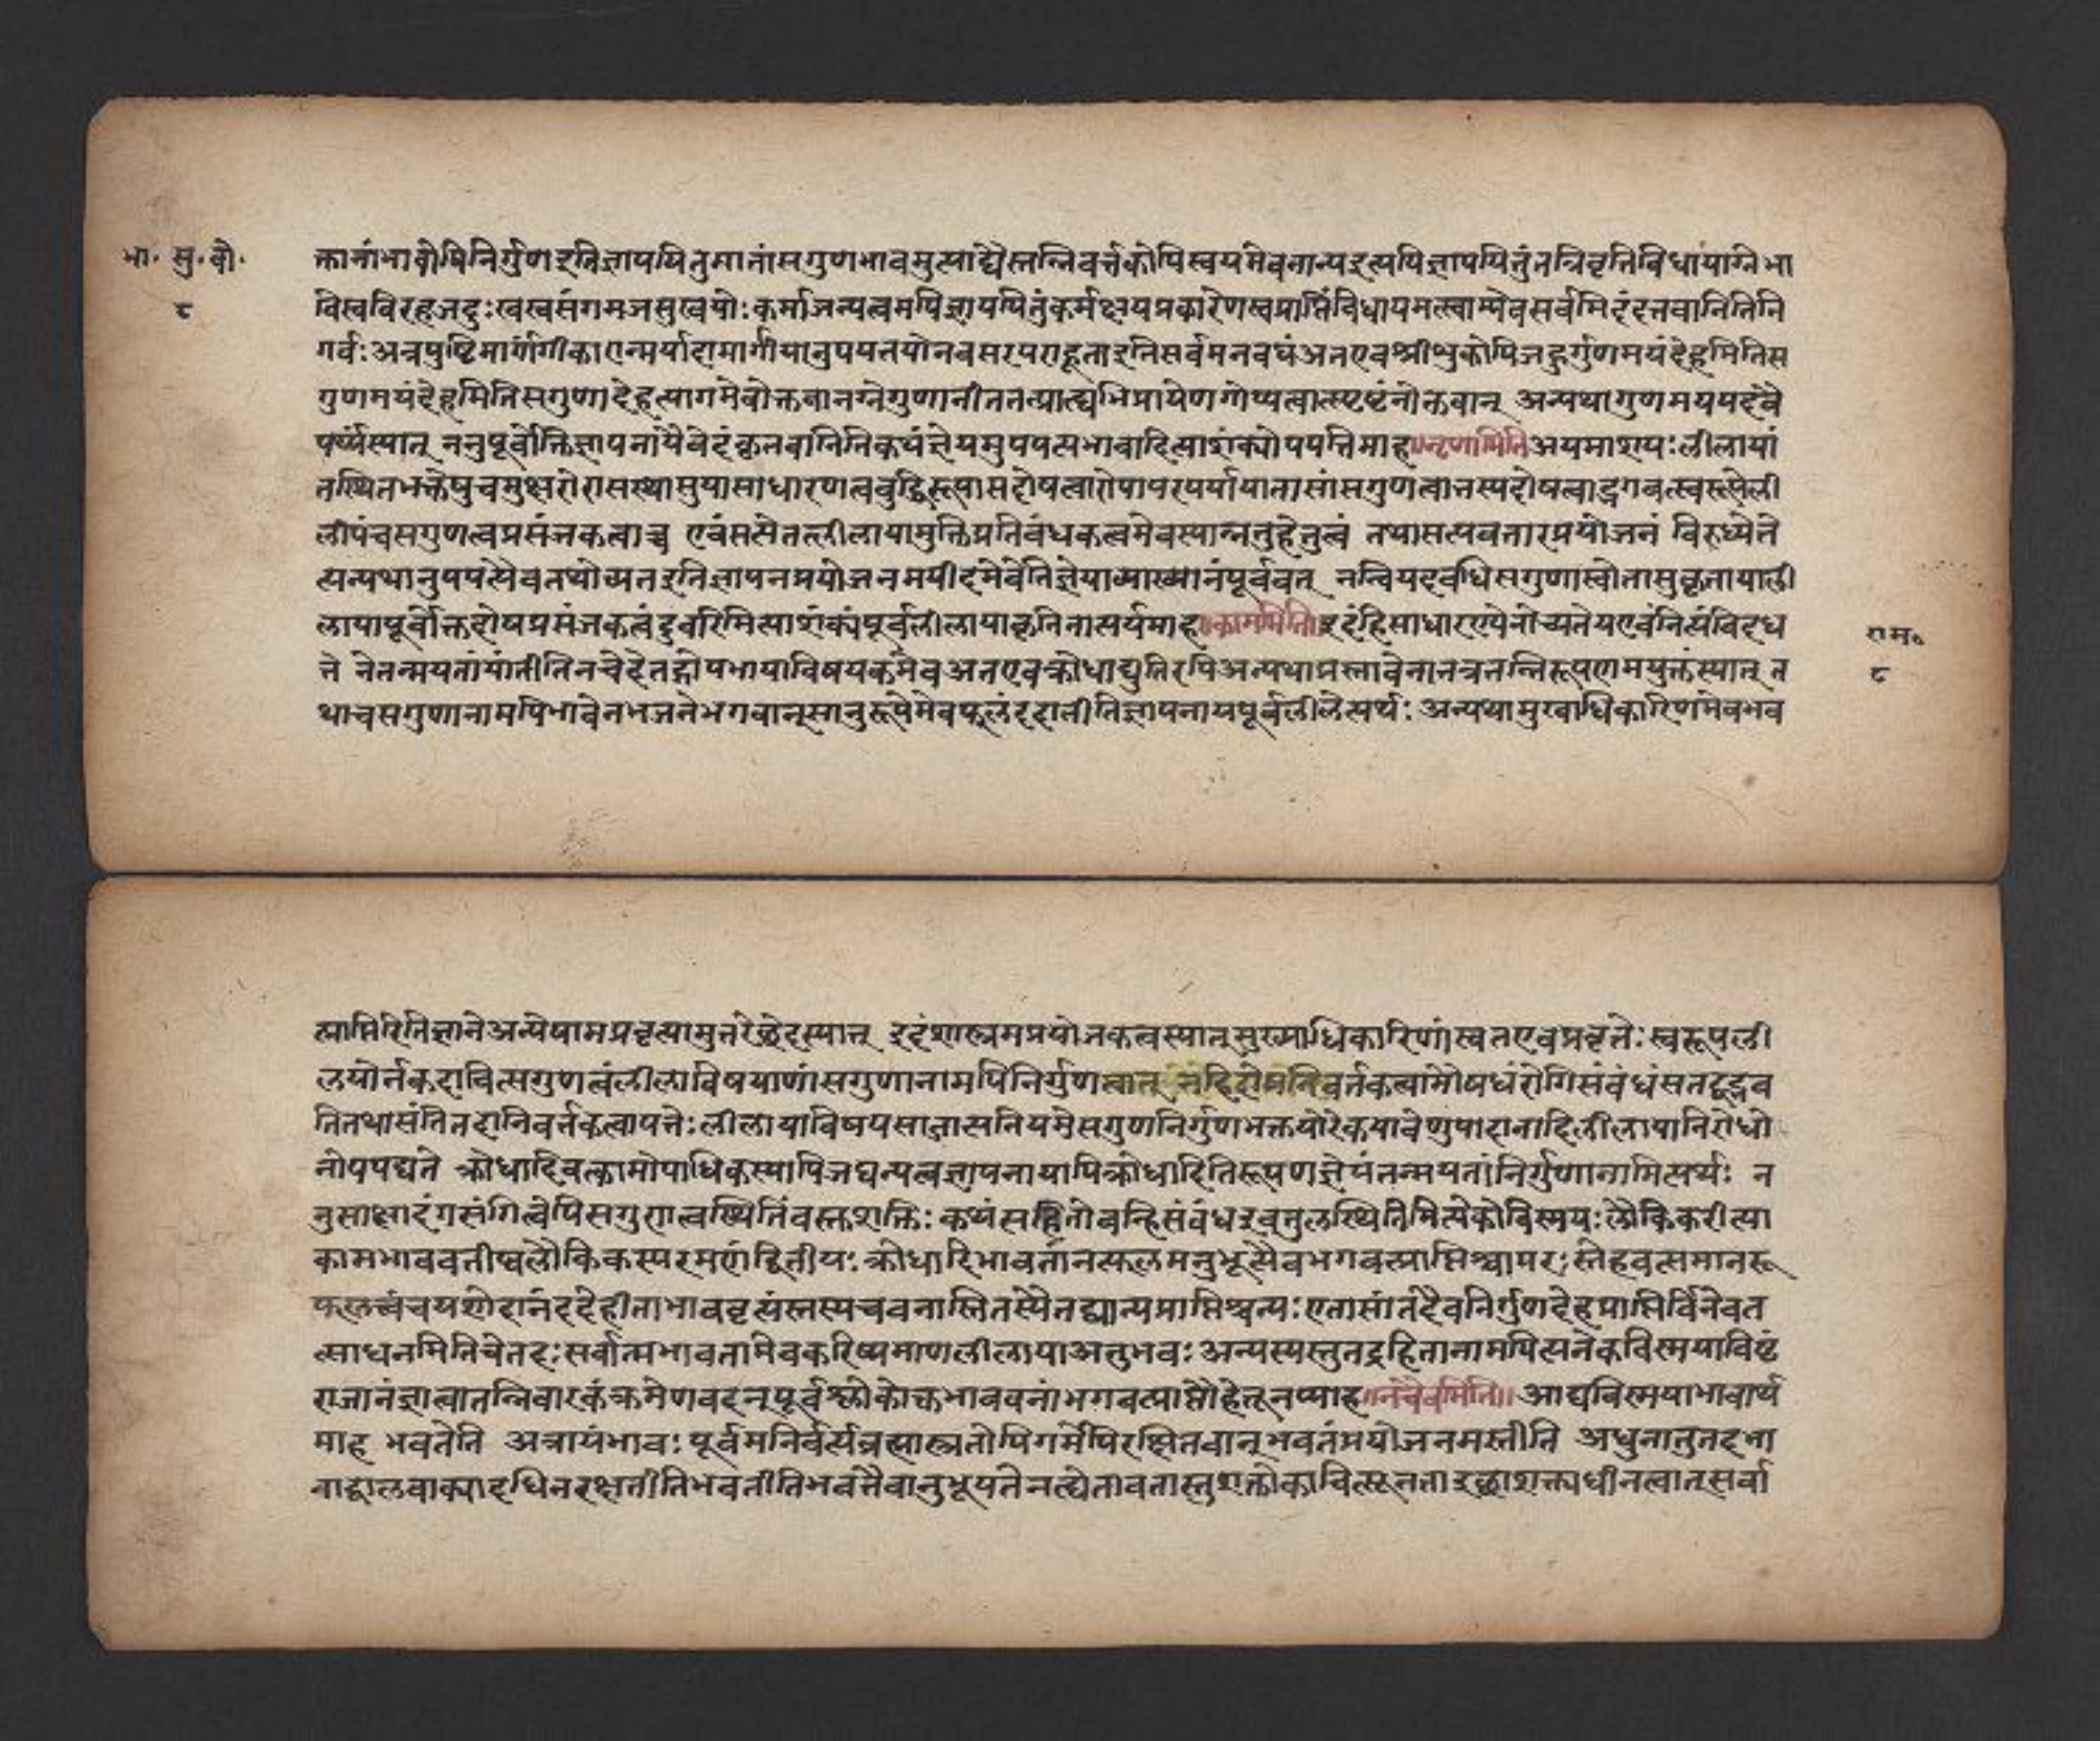 भा. सु. बो.
८
क्तानांभावोपिनिर्गुणइतिज्ञापयितुमातांसगुणभावमुत्पाद्यैस्तन्निवर्त्तकोपिस्वयमेवनान्यइत्यपिज्ञापयितुंतन्निवृत्तिविधायाग्नेभा
विस्वविरहजदुःखस्वसंगमजसुखयोःकर्माजन्यत्वमपिज्ञापयितुंकर्मक्षयप्रकारेणस्वप्राप्तिंविधायमत्स्वाम्येवसर्वमिदंदत्तवानितिनि
गर्वःअत्रपुष्टिमार्गांगीकारान्मर्यादामार्गीयानुपपत्तयोनवसरपराहूताइतिसर्वमनवद्यंअतएवश्रीशुकोपिजहुर्गुणमयंदेहमितिस
गुणमयंदेहमितिसगुणादेहत्यागमेवोक्तवानग्नेगुणातीततत्प्राप्त्यभिप्रायेणगोप्यत्वात्स्पष्टंनोक्तवान् अन्यथागुणमयपदंवै
यर्थ्यंस्यात् ननुपूर्वोक्तज्ञापनायैवेदंकृतवानितिकथंज्ञेयमुपपत्यभावादित्याशंक्योपपत्तिमाह॥नृणामिति॥अयमाशयःलीलायां
तस्थितभक्तेषुचमुक्षरोरासस्थामुपासाधारणत्वबुद्धिरूपासदोषत्वारोपापरपर्यायातासांसगुणत्वानस्पदोषत्वाद्भगवत्स्वरूपेली
लीपंचसगुणत्वप्रसंजकत्वाच्च एवंसत्येतल्लीलायामुक्तिप्रतिबंधकत्वमेवस्यान्नतुहेतुत्वं तथासत्यवतारप्रयोजनं विरुध्येते
त्यन्यथानुपपत्यैवतथोच्यतइतिज्ञापनप्रयोजनमपीदमेवेतिज्ञेयाव्याख्यानंपूर्ववत् नन्वियदवधिसगुणास्वोतासुकृतायाली
लायापूर्वोक्तदोषप्रसंजकत्वंदुर्वारमित्याशंक्यंपूर्वलीलायाकृतितात्पर्यमाह॥काममिति॥इदंहिसाधारण्येनोच्यतेयएवंनित्यंविदध
ते तेतन्मयतांयांतीतिनचेदेतद्गोपभार्याविषयकमेवअतएवक्रोधाद्युक्तिरपिअन्यथाप्रस्तावेनानत्रतन्निरूपणमयुक्तंस्यात् त
थाचसगुणानामपिभावेनभजनेभगवान्सानुरूपमेवफलंददातीतिज्ञापनायपूर्वलीलेत्यर्थः अन्यथामुख्याधिकारिणमेवभव
राम॰
८
त्प्राप्तिरितिज्ञानेअन्येषामप्रवृत्यामुक्तरेच्छेदस्यात् इदंशास्त्रमप्रयोजकत्वस्यात्मुख्याधिकारिणांस्वतएवप्रवृत्तेःस्वरूपली
लयोर्नकदाचित्सगुणत्वंलीलाविषयाणांसगुणानामपिनिर्गुणत्वात् नहिरोगनिवर्तकत्वामौषधंरोगिसंबंधंसतद्वद्भव
तितथासंतितदानिवर्तकत्वापत्तेःलीलायाविषयसाजात्यनियमेसगुणनिर्गुणभक्तयोरेकयावेणुपादानादिलीलायानिरोधो
नोपपद्यते क्रोधादिवत्कामोपाधिकस्यापिजघन्यत्वज्ञापनायापिक्रोधादितिरूपणज्ञेयंतन्मयतांनिर्गुणानामित्यर्थः न
नुसाक्षादंगसंगित्वेपिसगुणत्वस्थितिंवक्तशक्तिःकथंसन्नितोवन्हिसंबंधइवतुलस्थितिमित्येकोविस्मयःलौकिकरीत्या
कामभाववतीष्वलौकिकस्परमणंद्वितीयःक्रोधारिभावतांतत्फलमनुभूत्यैवभगवत्प्राप्तिश्चापरःस्नेहवत्समानरू
फलत्त्वंचयशोदानंददेहीनाभाववृत्यंस्तस्यचवनास्नितस्यैतद्घात्यप्राप्तिश्चन्यःएतासांतदैवनिर्गुणदेहप्राप्तिर्विनैवत
त्साधनमितिचेतहःसर्वात्मभावतामेवकरिष्यमाणलीलायाअनुभवःअन्यस्यस्तुतद्रहितानामपित्यनेकविस्मयाविष्टं
राजानंज्ञात्वातन्निवारकंक्रमेणवदन्पूर्वश्लोकोक्तभाववतांभगवत्प्राप्तौहेतूनप्याह॥नचैवमिति॥आद्यविस्मयाभावार्थ
माह भवतेति अत्रायंभावःपूर्वमनिर्वर्त्यब्रह्मास्त्रतोपिगर्भेपिरक्षितवान्भवतंप्रयोजनमस्तीति अधुनातुतदभा
वाद्बालवाक्यादधिनरक्षतीतिभवतीतिभवतैवानुभूयतेनत्येतावतास्तुशक्तौकाचित्न्यूनताइच्छाशक्त्यधीनत्वात्सर्वा